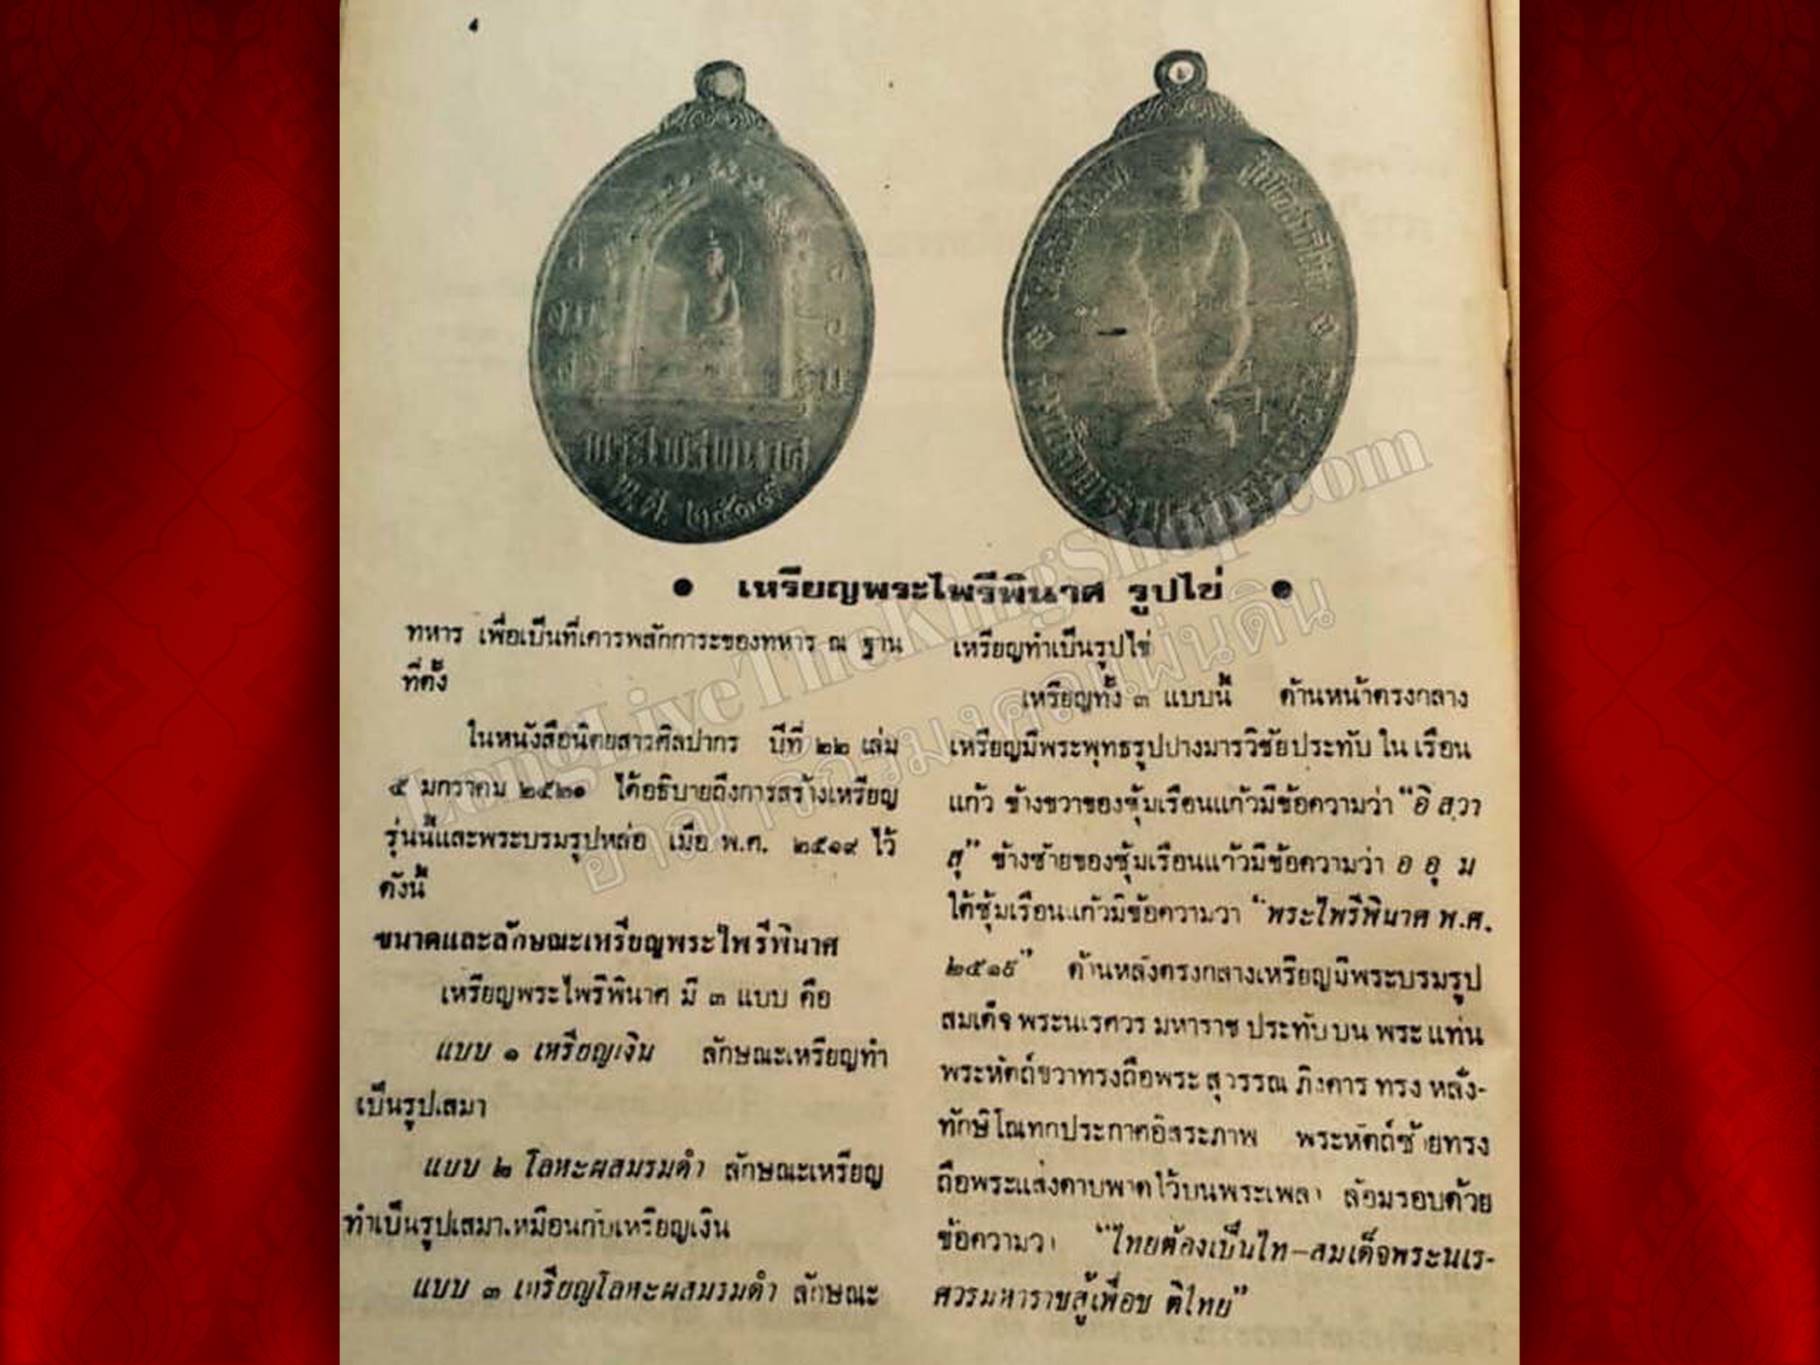 4
พระไพรีพินาศ
พ.ศ. ๒๕๑๙
● เหรียญพระไพรีพินาศ รูปไข่ ●
ทหาร เพื่อเป็นที่เคารพสักการะของทหาร ณ ฐาน
ที่ตั้ง
ในหนังสือนิตยสารศิลปากร ปีที่ ๒๒ เล่ม
๕ มกราคม ๒๕๒๑ ได้อธิบายถึงการสร้างเหรียญ
รุ่นนี้และพระบรมรูปหล่อ เมื่อ พ.ศ. ๒๕๑๙ ไว้
ดังนี้
ขนาดและลักษณะเหรียญพระไพรีพินาศ
เหรียญพระไพรีพินาศ มี ๓ แบบ คือ
แบบ ๑ เหรียญเงิน ลักษณะเหรียญทำ
เป็นรูปเสมา
แบบ ๒ โลหะผสมรมดำ ลักษณะเหรียญ
ทำเป็นรูปเสมาเหมือนกับเหรียญเงิน
แบบ ๓ เหรียญโลหะผสมรมดำ ลักษณะ
เหรียญทำเป็นรูปไข่
เหรียญทั้ง ๓ แบบนี้ ด้านหน้าตรงกลาง
เหรียญมีพระพุทธรูปปางมารวิชัยประทับ ใน เรือน
แก้ว ข้างขวาของซุ้มเรือนแก้วมีข้อความว่า "อิ สวา
สุ" ข้างซ้ายของซุ้มเรือนแก้วมีข้อความว่า อ อุ ม
ใต้ซุ้มเรือนแก้วมีข้อความว่า "พระไพรีพินาศ พ.ศ.
๒๕๑๙" ด้านหลังตรงกลางเหรียญมีพระบรมรูป
สมเด็จ พระนเรศวร มหาราช ประทับ บน พระ แท่น
พระหัตถ์ขวาทรงถือพระ สุวรรณ ภิงคาร ทรง หลั่ง-
ทักษิโณทกประกาศอิสระภาพ พระหัตถ์ซ้ายทรง
ถือพระแสงดาบพาดไว้บนพระเพลา ล้อมรอบด้วย
ข้อความว่า "ไทยต้องเป็นไท–สมเด็จพระนเร-
ศวรมหาราชสู้เพื่อชาติไทย"
LongLiveTheKingShop.com